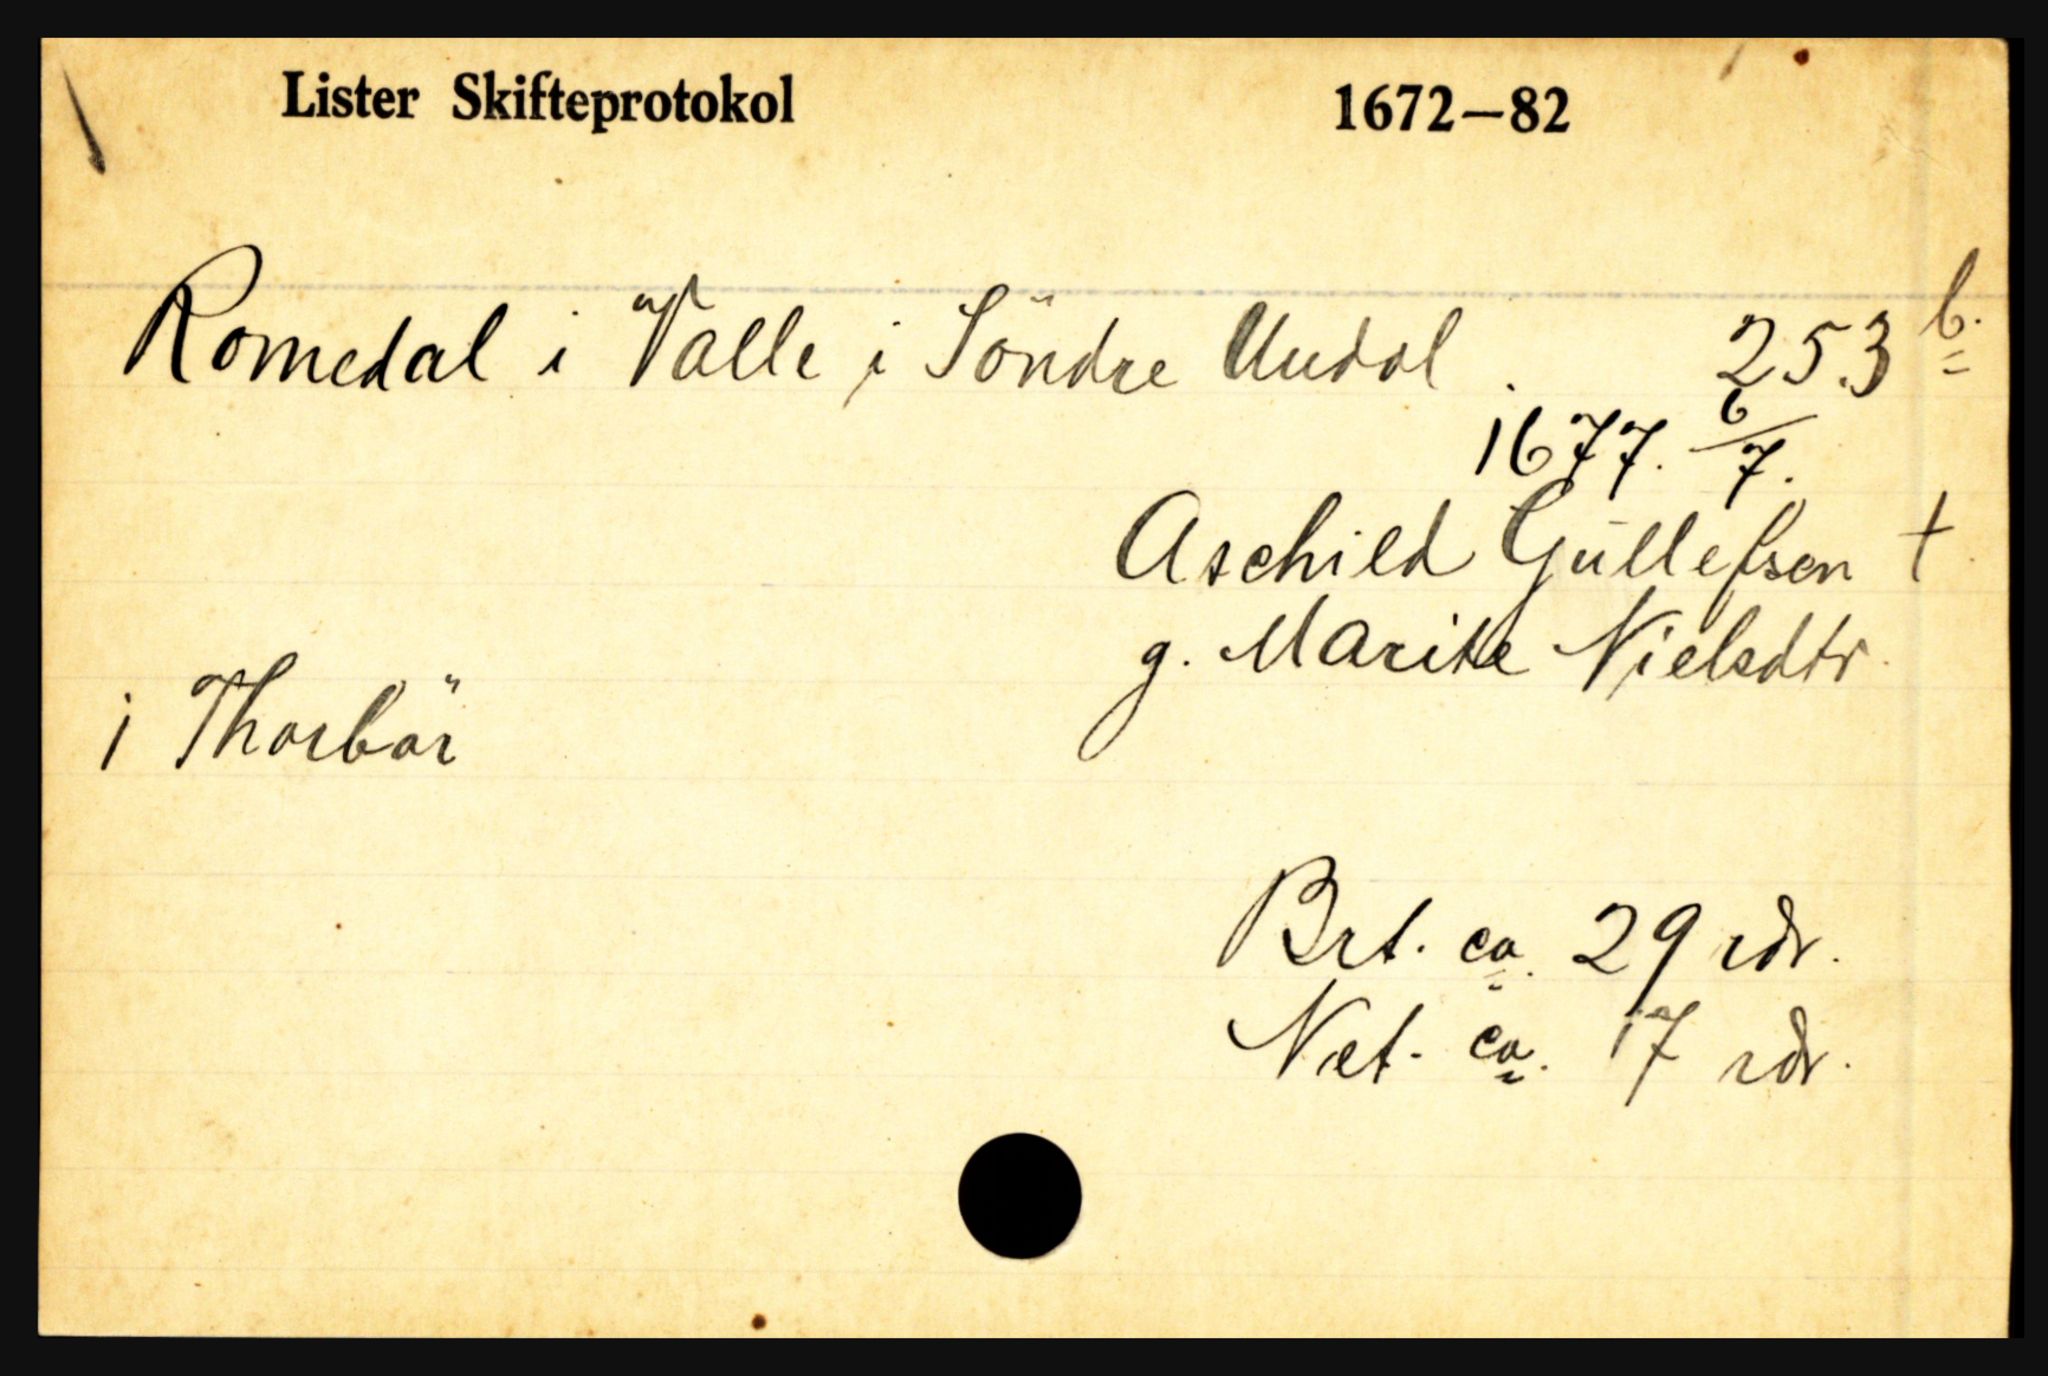 Lister Skifteprotokol 1672–82
Romedal i Valle i Söndre Undal. 253 b.
1677. 6/7.
Aschild Gullefsen †
g. Marite Nielsdtr.
i Thorbör
Brt. ca. 29 rdr.
Net. ca. 17 rdr.